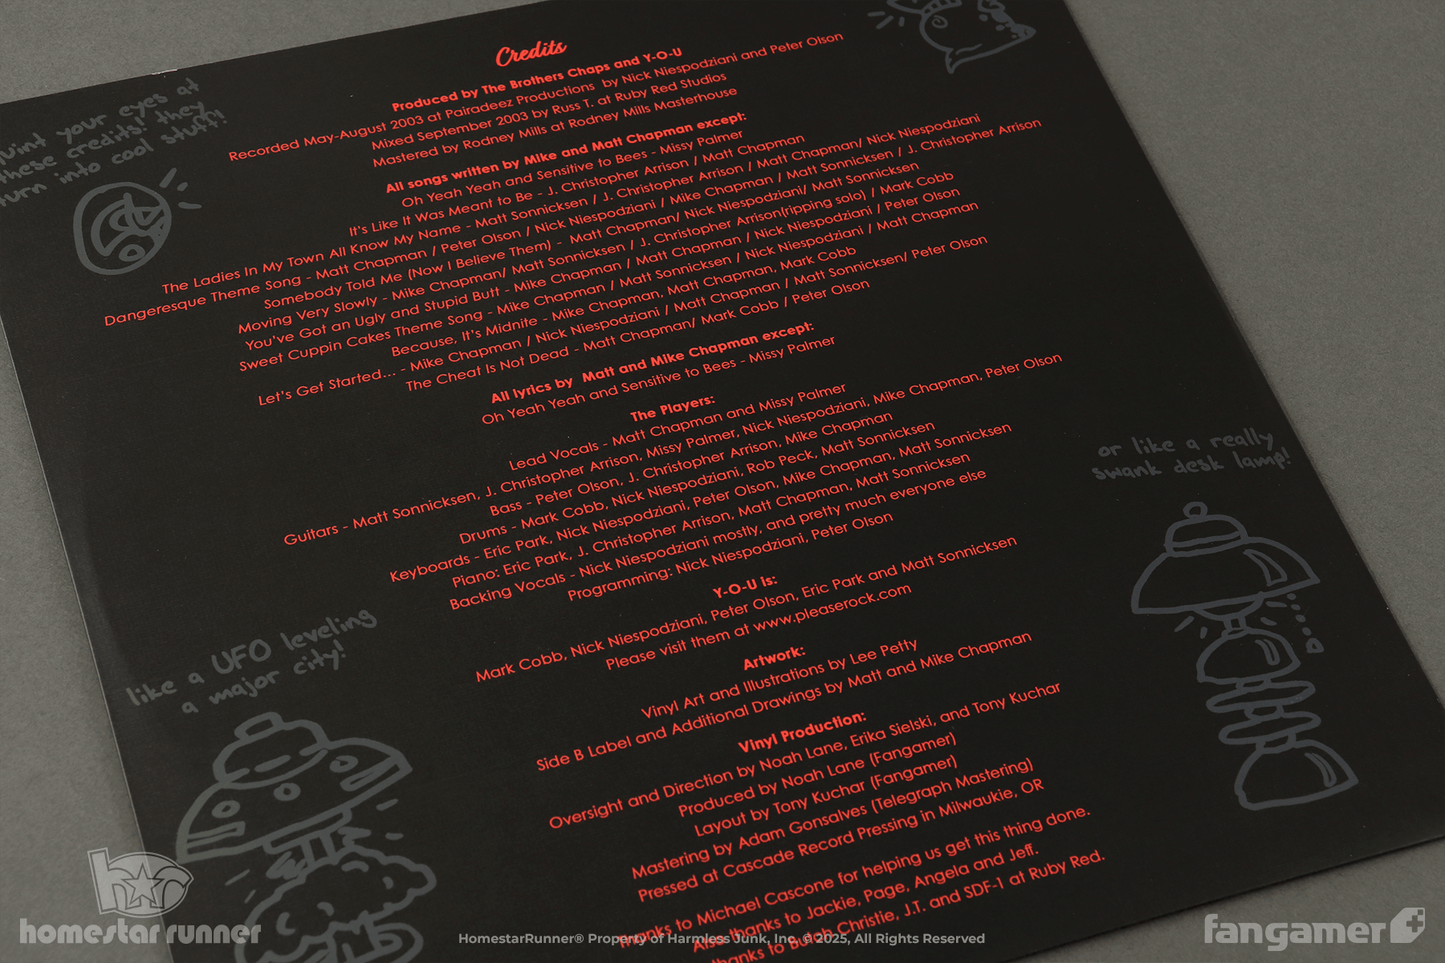 Credits
Produced by The Brothers Chaps and Y-O-U
Recorded May-August 2003 at Pairadeez Productions by Nick Niespodziani and Peter Olson
Mixed September 2003 by Russ T. at Ruby Red Studios
Mastered by Rodney Mills at Rodney Mills Masterhouse
All songs written by Mike and Matt Chapman except:
Oh Yeah Yeah and Sensitive to Bees - Missy Palmer
It's Like It Was Meant to Be - J. Christopher Arrison / Matt Chapman
The Ladies In My Town All Know My Name - Matt Sonnicksen / J. Christopher Arrison / Matt Chapman/ Nick Niespodziani
Dangeresque Theme Song - Matt Chapman / Peter Olson / Nick Niespodziani / Mike Chapman / Matt Sonnicksen / J. Christopher Arrison
Somebody Told Me (Now I Believe Them) - Matt Chapman/ Nick Niespodziani/ Matt Sonnicksen
Moving Very Slowly - Mike Chapman/ Matt Sonnicksen / J. Christopher Arrison(ripping solo) / Mark Cobb
You've Got an Ugly and Stupid Butt - Mike Chapman / Matt Chapman / Nick Niespodziani / Peter Olson
Sweet Cuppin Cakes Theme Song - Mike Chapman / Matt Sonnicksen / Nick Niespodziani / Matt Chapman
Because, It's Midnite - Mike Chapman, Matt Chapman, Mark Cobb
Let's Get Started... - Mike Chapman / Nick Niespodziani / Matt Chapman / Matt Sonnicksen/ Peter Olson
The Cheat Is Not Dead - Matt Chapman/ Mark Cobb / Peter Olson
All lyrics by Matt and Mike Chapman except:
Oh Yeah Yeah and Sensitive to Bees - Missy Palmer
The Players:
Lead Vocals - Matt Chapman and Missy Palmer
Guitars - Matt Sonnicksen, J. Christopher Arrison, Missy Palmer, Nick Niespodziani, Mike Chapman, Peter Olson
Bass - Peter Olson, J. Christopher Arrison, Mike Chapman
Drums - Mark Cobb, Nick Niespodziani, Rob Peck, Matt Sonnicksen
Keyboards - Eric Park, Nick Niespodziani, Peter Olson, Mike Chapman, Matt Sonnicksen
Piano: Eric Park, J. Christopher Arrison, Matt Chapman, Matt Sonnicksen
Backing Vocals - Nick Niespodziani mostly, and pretty much everyone else
Programming: Nick Niespodziani, Peter Olson
Y-O-U is:
Mark Cobb, Nick Niespodziani, Peter Olson, Eric Park and Matt Sonnicksen
Please visit them at www.pleaserock.com
Artwork:
Vinyl Art and Illustrations by Lee Petty
Side B Label and Additional Drawings by Matt and Mike Chapman
Vinyl Production:
Oversight and Direction by Noah Lane, Erika Sielski, and Tony Kuchar
Produced by Noah Lane (Fangamer)
Layout by Tony Kuchar (Fangamer)
Mastering by Adam Gonsalves (Telegraph Mastering)
Pressed at Cascade Record Pressing in Milwaukie, OR
Thanks to Michael Cascone for helping us get this thing done.
Also thanks to Jackie, Page, Angela and Jeff.
thanks to Butch Christie, J.T. and SDF-1 at Ruby Red.
your eyes at
these credits! they
turn into cool stuff!
like a UFO leveling
a major city!
or like a really
swank desk lamp!
hr
homestar runner
HomestarRunner® Property of Harmless Junk, Inc. © 2025, All Rights Reserved
fangamer